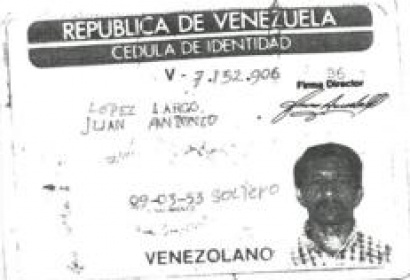 REPUBLICA DE VENEZUELA
CEDULA DE IDENTIDAD
V - 7.152.906
Firma Director
LOPEZ LARGO
JUAN ANTONIO
09-03-53 SOLTERO
VENEZOLANO